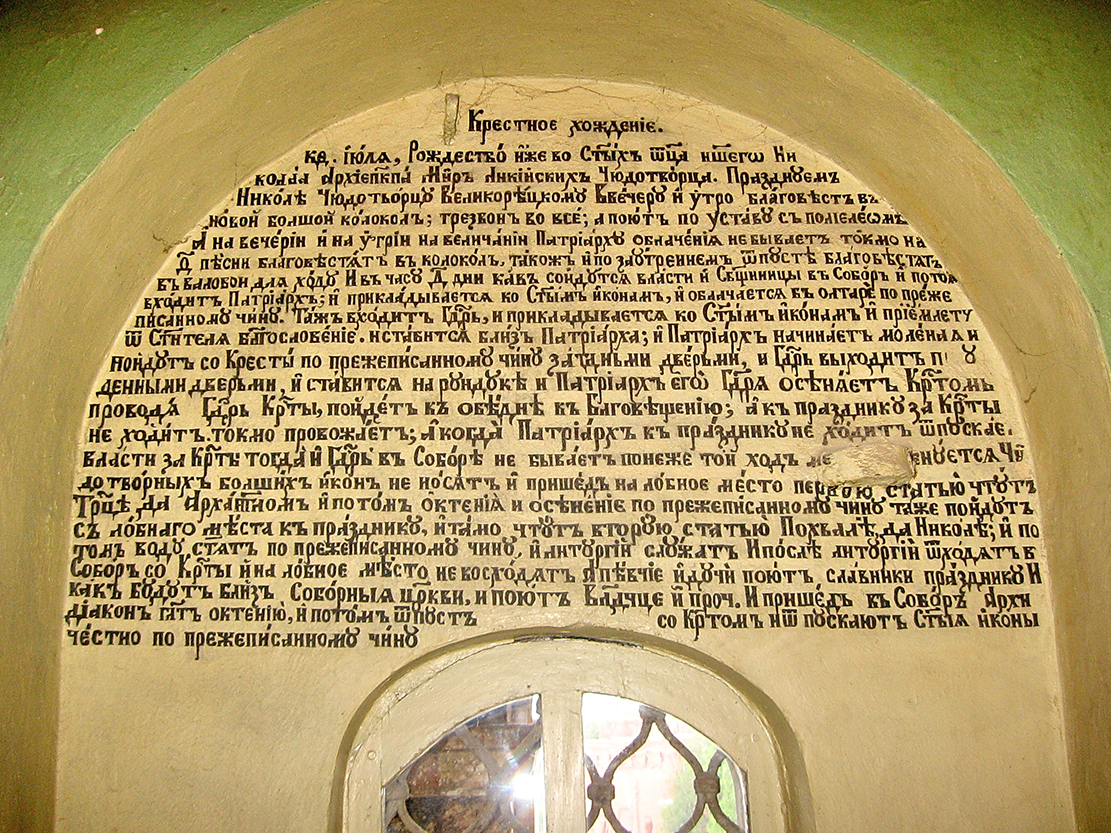 Крестное хожденїе.
к҃д. Їюля, Рождество̀ и́же во Ст҃ы́хъ ѿц҃а нш҃егѡ Ни
кола́а Архїепⷭ҇кпа Мѵ́ръ Ликі́йскихъ Чюдотво́рца. Пра́зднуемъ
Нико́лѣ Чюдотво́рцу Великорѣ́цкому Ввѐчеру и̂ у́тро благовѣ́стъ въ
но́вой болшо́й ко́локолъ; трезво́нъ во всѐ; а̂ пою́тъ по уста́ву съ полїеле́ѡмъ
А̂ на вече́рїи и̂ на у́трїи на велича́нїи Патрїа́рху облаче́нїя не быва́етъ то́кмо на
д҃ пѣ́сни благовѣ́стятъ въ ко́локолъ, та́кожъ и̂ по зау́тренїемъ ѿпустѣ̀ благовѣ́стятъ
въ валово́й для хо́ду И въ часу̀ д҃ дни ка́къ со́йдутся вла́сти и̂ Сщ҃е́нницы въ Собо́ръ и̂ пото́мъ
вхо́дитъ Патрїа́рхъ; и̂ прикла́дывается ко Ст҃ы́мъ и̂ко́намъ, и̂ облача́ется въ олтарѣ̀ по пре́же
пи́санному чи́ну. Та́жъ вхо́дитъ Гдⷭ҇рь, и прикла́дывается ко Ст҃ы́мъ и̂ко́намъ и̂ прїе́млетъ у
ѿ Ст҃и́теля благослове́нїе. и ста́вится бли́зъ Патрїа́рха; и̂ Патрїа́рхъ начина́етъ моле́ная и̂
по́йдутъ со Кресты̀ по прежепи́санному чи́ну за́падными две́рьми, и Гдⷭ҇рь выхо́дитъ
денными две́рьми, и̂ ста́вится на рундукѣ̀ и̂ Патрїа́рхъ егѡ̀ Гдⷭ҇ря осѣня́етъ Крⷭ҇то́мъ
проводя̀ Гдⷭ҇рь Крⷭ҇ты̀, по́йдетъ въ обѣ́днѣ къ Благовѣ́щенїю; а̂ къ пра́зднику за Крⷭ҇ты̀
не хо́дитъ. то́кмо провожа́етъ; а̂ когда̀ Патрїа́рхъ къ пра́зднику не хо́дитъ ѿпуска́е
вла́сти за Крⷭ҇ты тогда̀ и̂ Гдⷭ҇рь въ Собо́рѣ не быва́етъ поне́же той хо́дъ ме енуется Чю
дотво́рныхъ болши́хъ и̂ко́нъ не но́сятъ и̂ прише́дъ на ло́бное мѣ́сто пе́рвою статью̀ чту́тъ
Трⷪ҇цѣ да Арха́гг҃ломъ и̂ пото́мъ октенїя̀ и̂ осѣне́нїе по прежепи́санному чи́ну та́же по́йдутъ
съ ло́бнаго мѣ́ста къ пра́зднику, и̂ та́мо чту́тъ втору́ю статью̀ Похвалѣ̀ да Нико́лѣ; и̂ по
то́мъ во́ду ст҃я́тъ по прежепи́санному чи́ну, и̂ литургі́и слу́жатъ И по́слѣ литургі́и ѿхо́дятъ в
Собо́ръ со Крⷭ҇ты̀ и̂ на ло́бное мѣ́сто не восхо́дятъ а̂ пѣ́вчїе и̂ду́чи пою́тъ, сла́вники пра́зднику И
ка́къ бу́дутъ бли́зъ Собо́рныя цр҃кви, и пою́тъ Влⷣчце и̂ про́ч. И прише́дъ въ Собо́ръ А̂рхи
дїа́конъ гл҃тъ октенїю̀, и̂ пото́мъ ѿпу́стъ со Крⷭ҇то́мъ и̂ ѿпуска́ютъ Ст҃ы́я и̂ко́ны
че́стно по прежепи́санному чи́ну